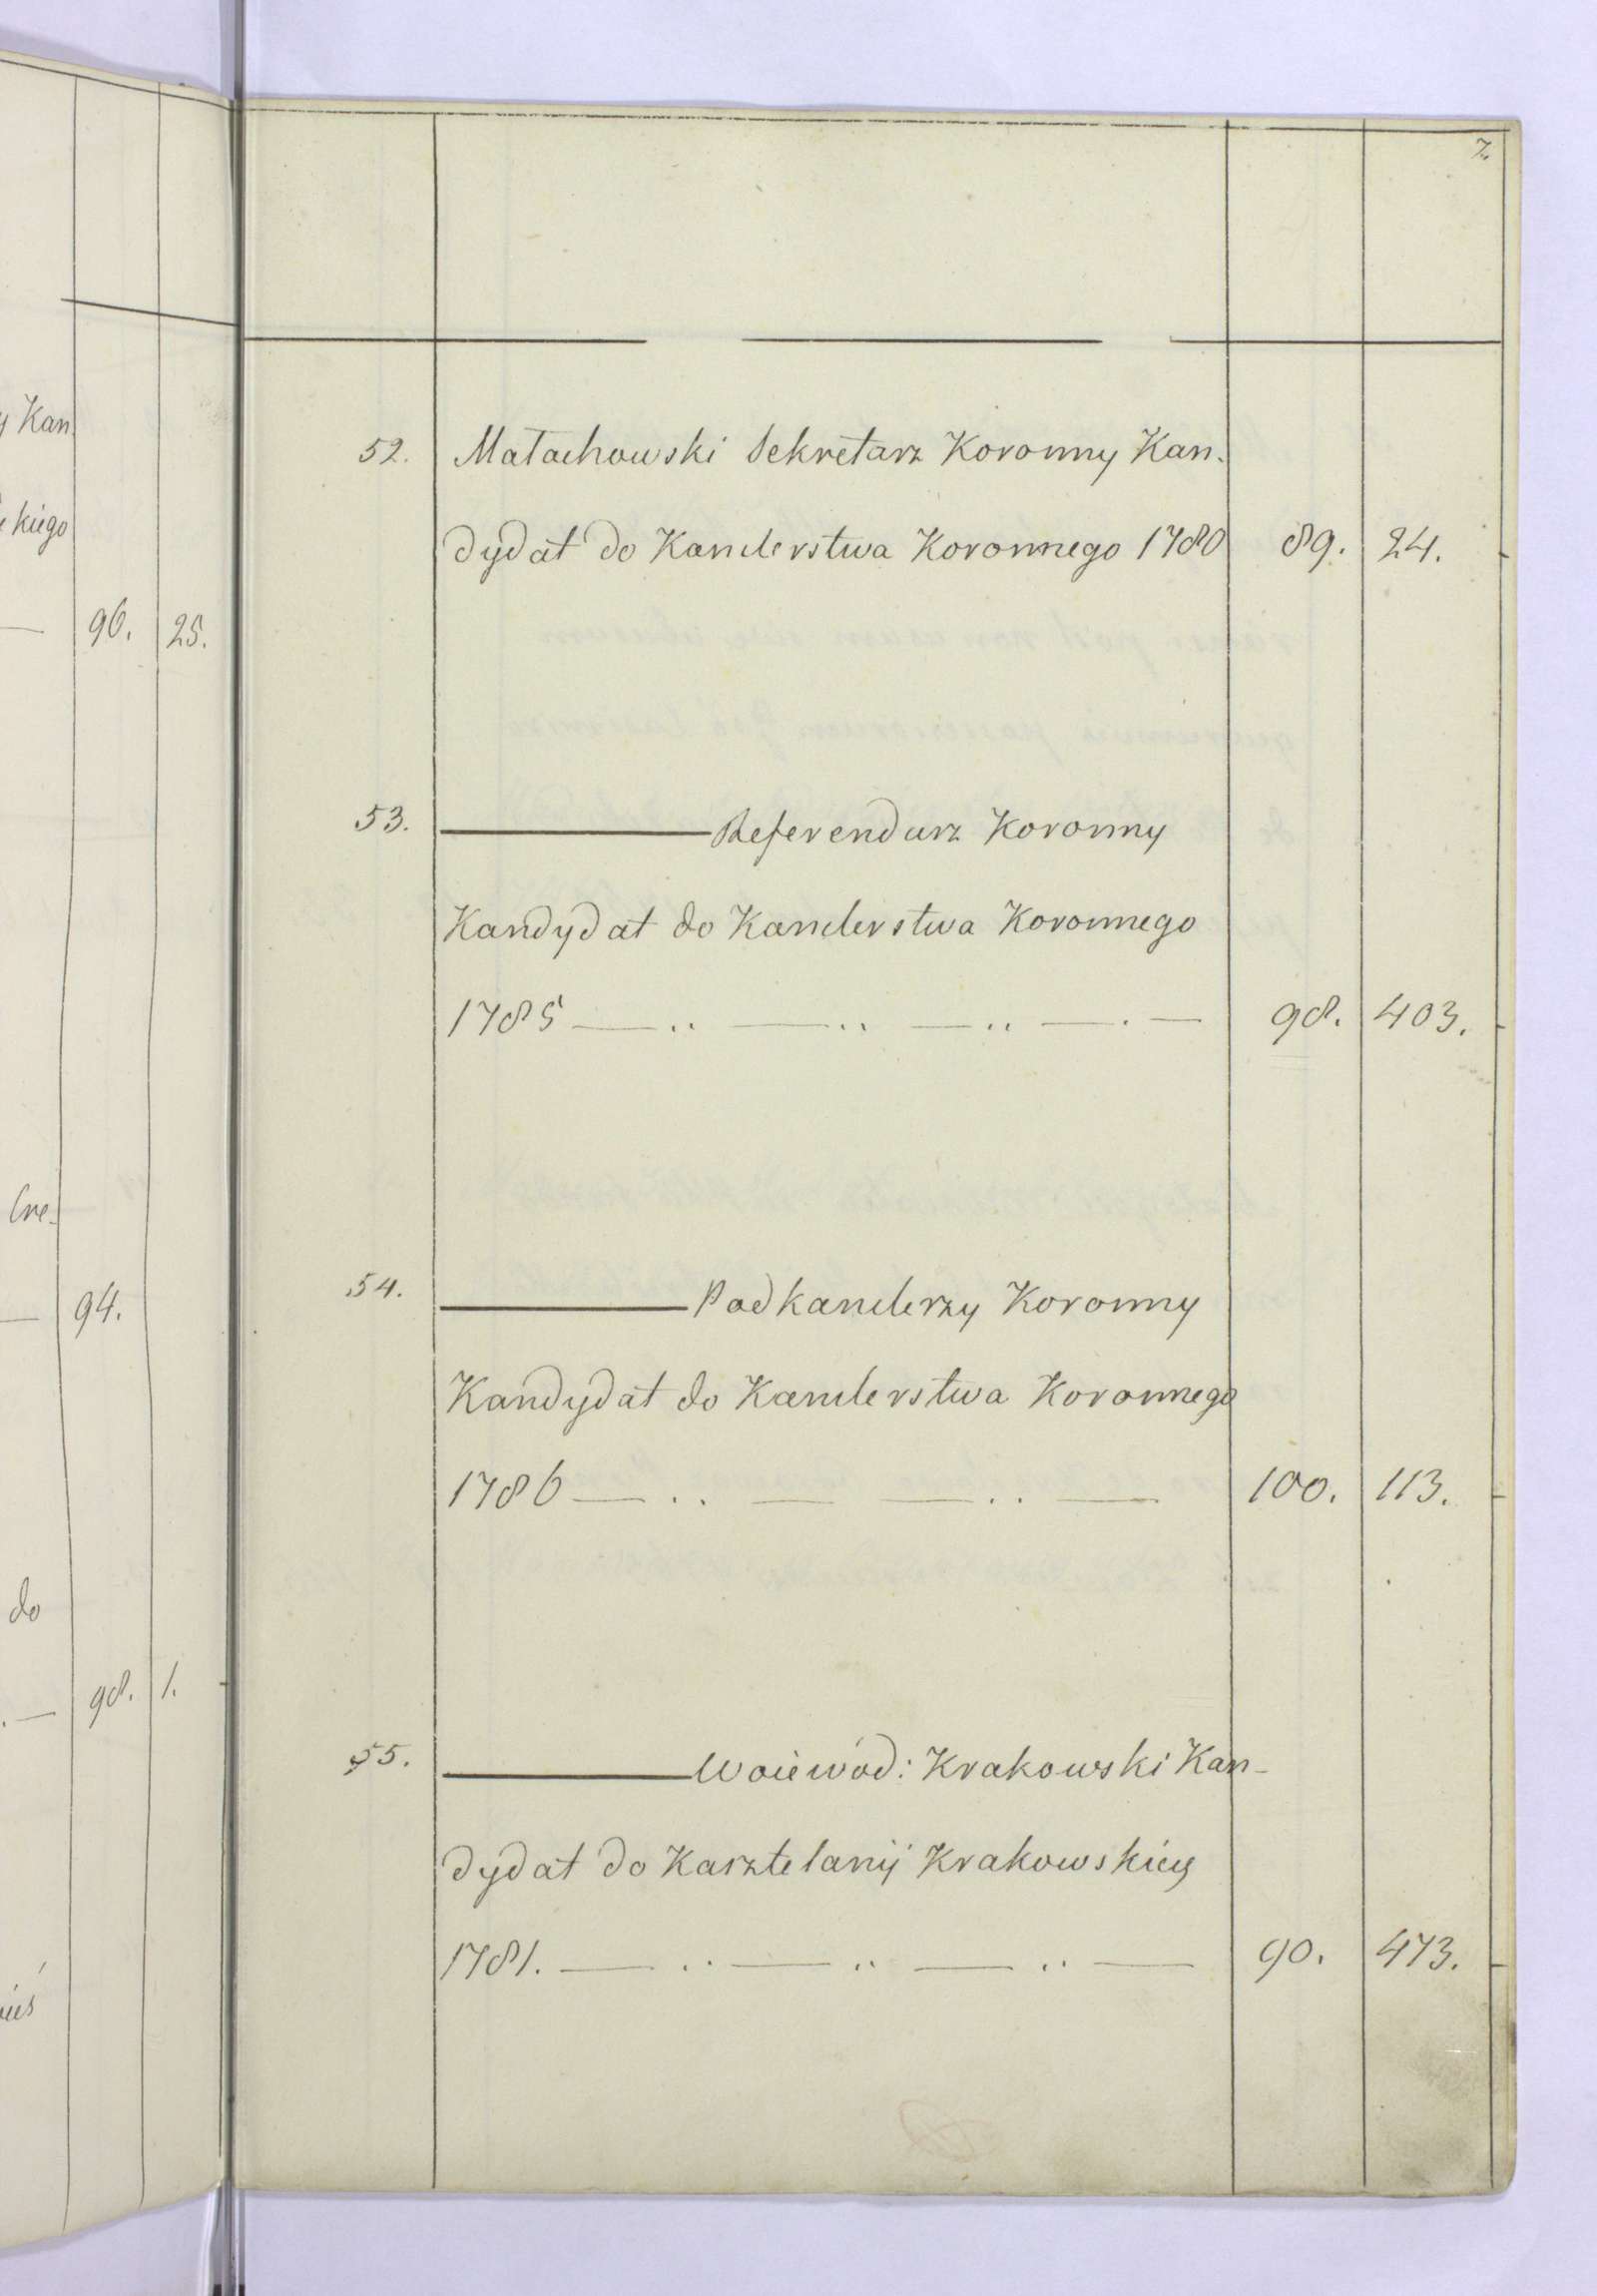 y Kan
kiego
96. 25.
Cre-
94.
do
98. 1.
7.
52. Małachowski Sekretarz Koronny Kan.
dydat do Kanclerstwa Koronnego 1780 89. 24.
53. ——— Referendarz Koronny
Kandydat do Kanclerstwa Koronnego
1785 — .. — .. — .. — . — 98. 403.
54. ——— Podkanclerzy Koronny
Kandydat do Kanclerstwa Koronnego
1786 — .. — — .. — 100. 113.
55. ——— Woiewód: Krakowski Kan-
dydat do Kasztelanij Krakowskiey
1781. — .. — .. — .. — 90. 473.